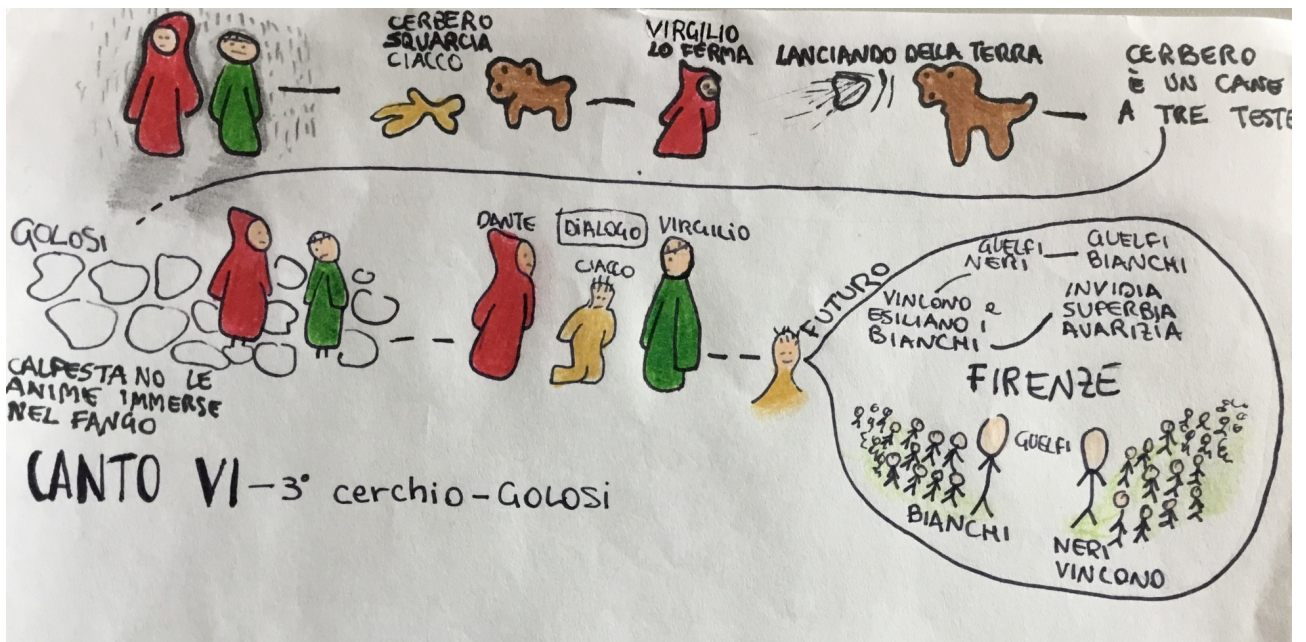 CERBERO
SQUARCIA
CIACCO
VIRGILIO
LO FERMA
LANCIANDO DELLA TERRA
CERBERO
È UN CANE
A TRE TESTE
GOLOSI
CALPESTANO LE
ANIME IMMERSE
NEL FANGO
DANTE
DIALOGO
CIACCO
VIRGILIO
FUTURO
GUELFI
NERI
GUELFI
BIANCHI
VINCONO e
ESILIANO I
BIANCHI
INVIDIA
SUPERBIA
AVARIZIA
FIRENZE
GUELFI
BIANCHI
NERI
VINCONO
CANTO VI - 3° cerchio - GOLOSI